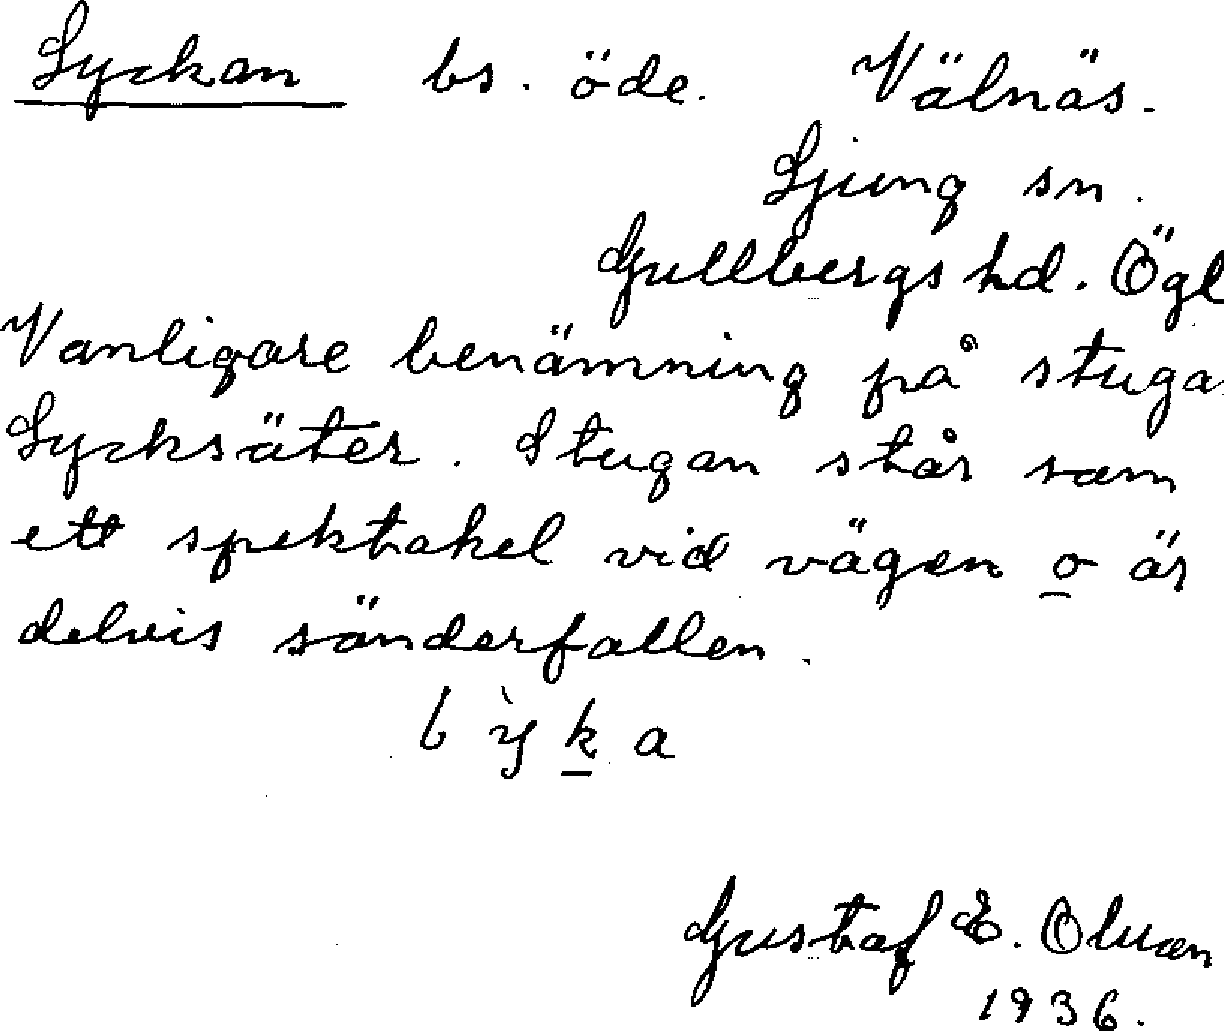 Lyckan bs. öde. Välnäs.
Ljung sn.
Gullbergs hd. Ögl
Vanligare benämning på stuga
Lycksäter. Stugan står som
ett spektakel vid vägen o är
delvis sönderfallen.
Gustaf E. Olman
1936.